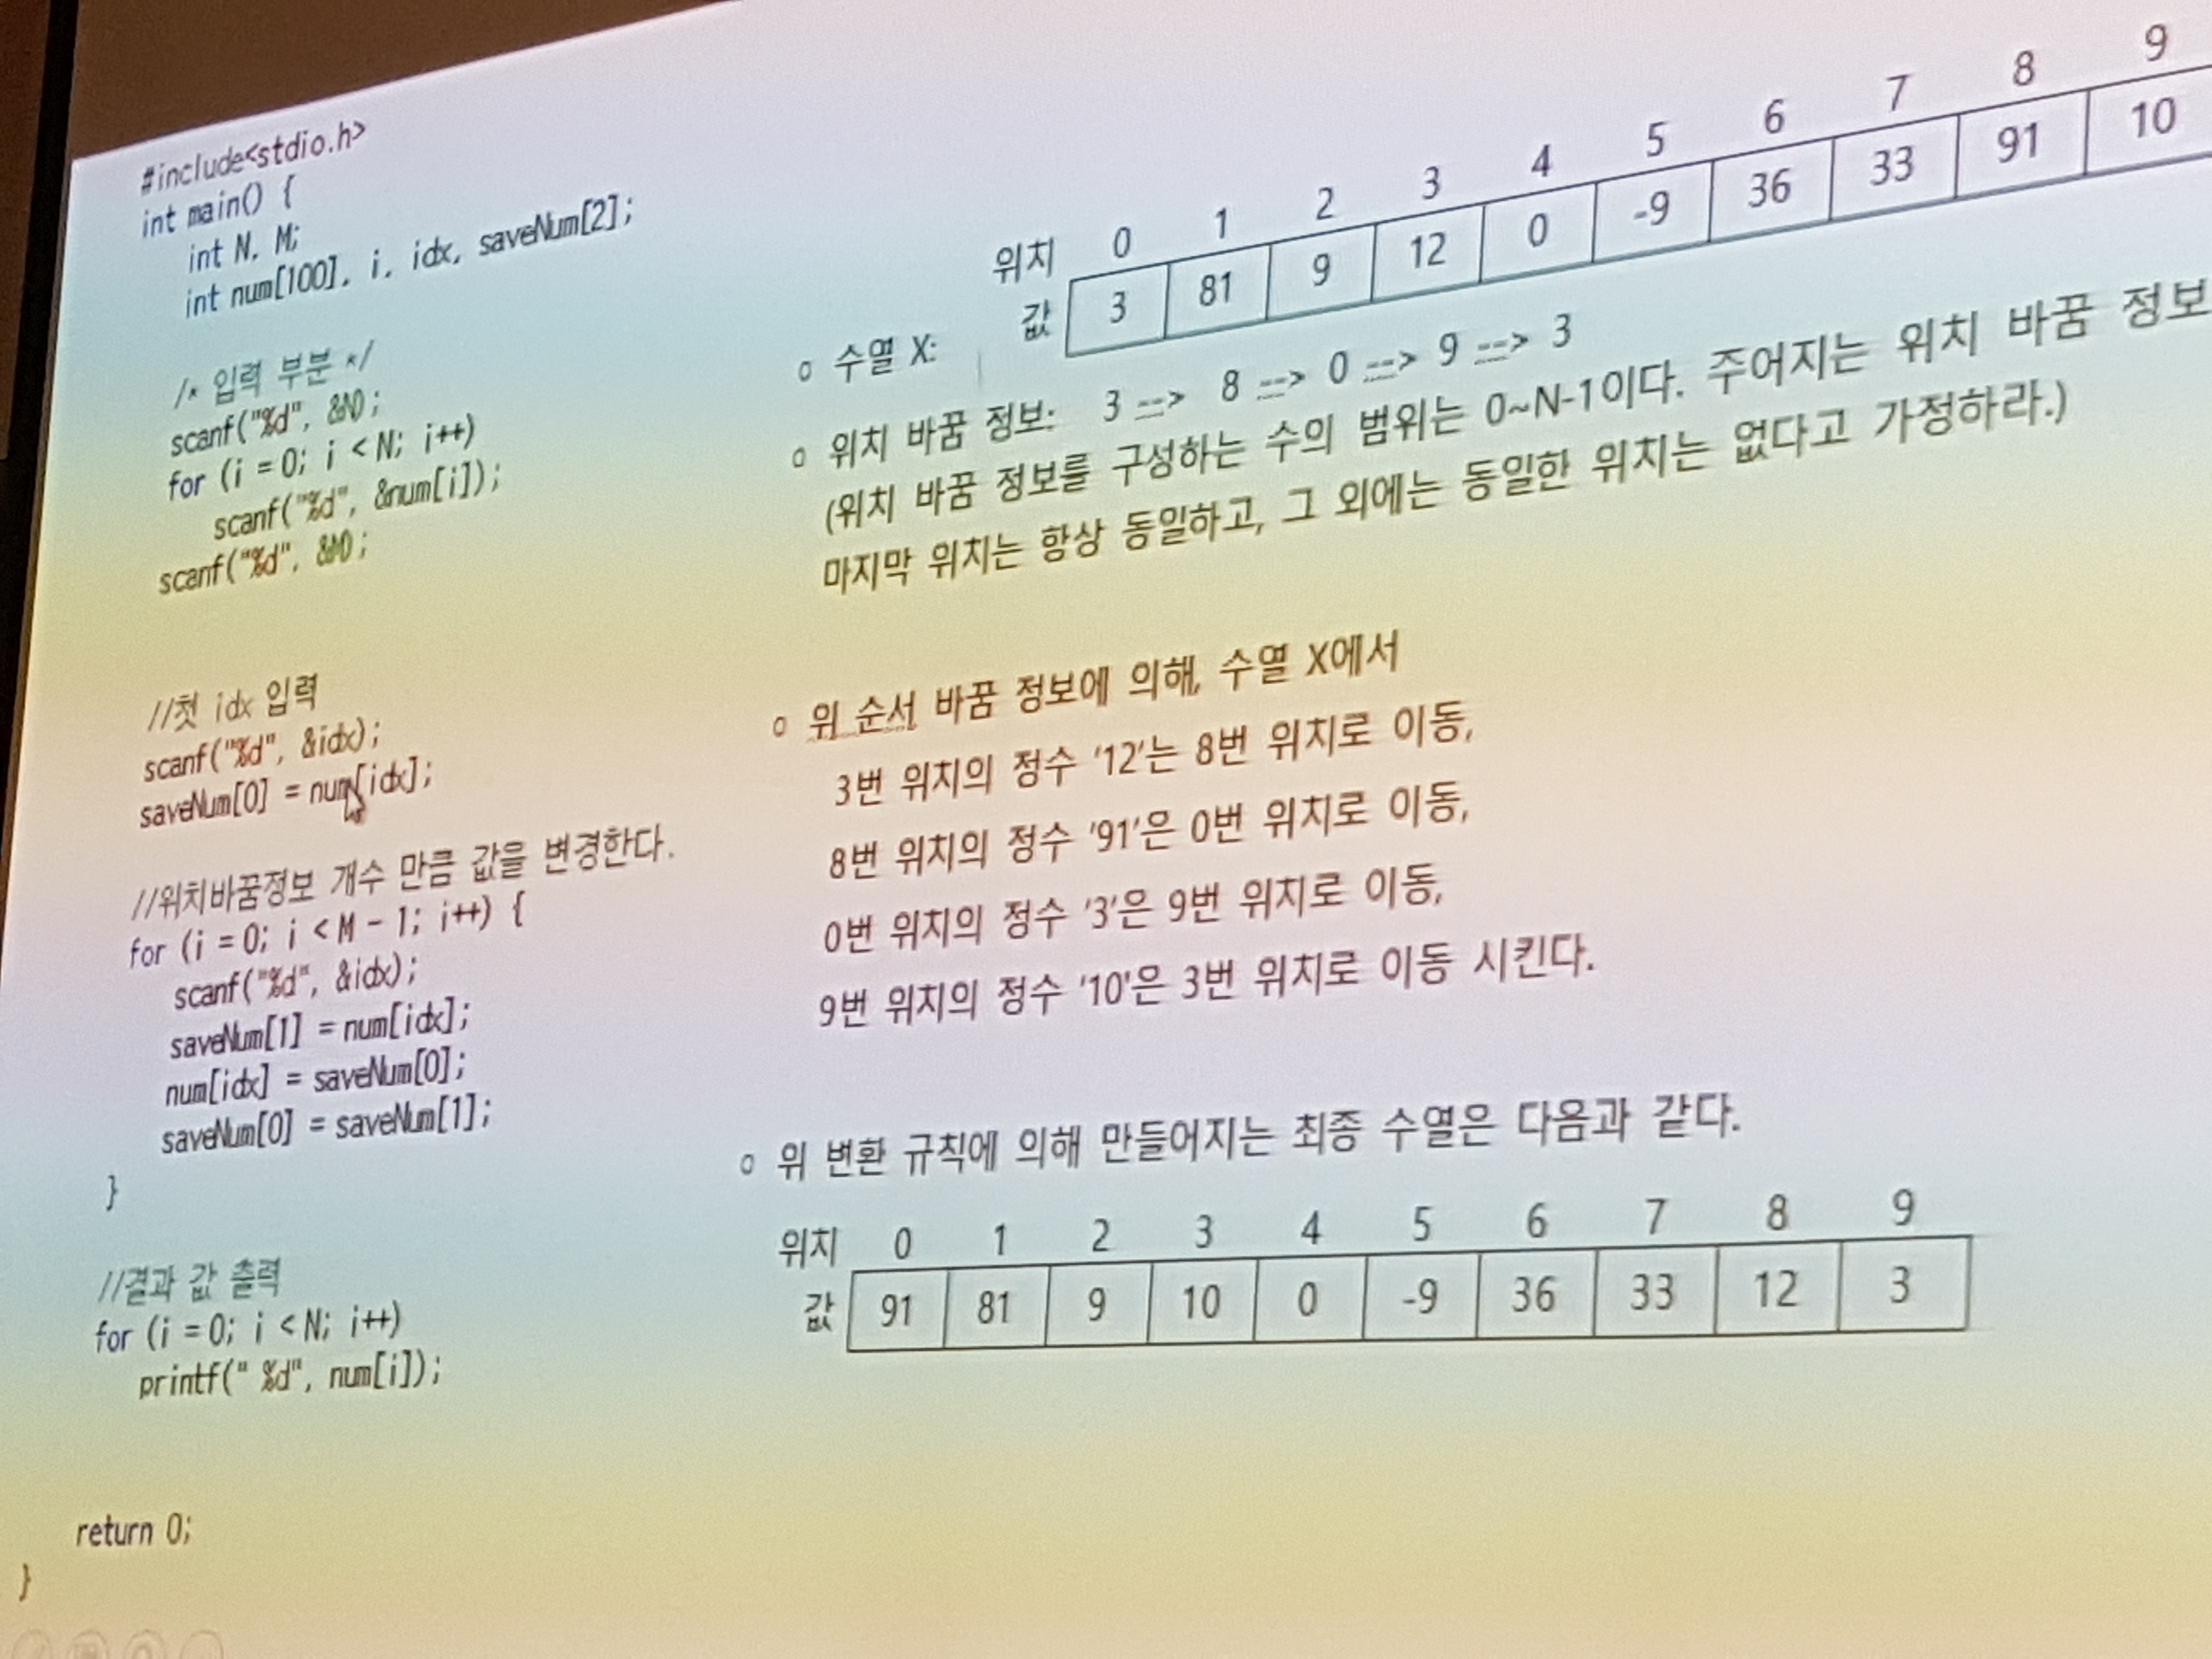 #include<stdio.h>
int main() {
int N, M;
int num[100], i, idx, saveNum[2];
/* 입력 부분 */
scanf("%d", &N);
for (i = 0; i < N; i++)
scanf("%d", &num[i]);
scanf("%d", &M);
//첫 idx 입력
scanf("%d", &idx);
saveNum[0] = num[idx];
//위치바꿈정보 개수 만큼 값을 변경한다.
for (i = 0; i < M - 1; i++) {
scanf("%d", &idx);
saveNum[1] = num[idx];
num[idx] = saveNum[0];
saveNum[0] = saveNum[1];
}
//결과 값 출력
for (i = 0; i < N; i++)
printf(" %d", num[i]);
return 0;
}
위치 0 1 2 3 4 5 6 7 8 9
값 3 81 9 12 0 -9 36 33 91 10
o 수열 X:
o 위치 바꿈 정보: 3 => 8 => 0 => 9 => 3
(위치 바꿈 정보를 구성하는 수의 범위는 0~N-1이다. 주어지는 위치 바꿈 정보
마지막 위치는 항상 동일하고, 그 외에는 동일한 위치는 없다고 가정하라.)
o 위 순서 바꿈 정보에 의해, 수열 X에서
3번 위치의 정수 '12'는 8번 위치로 이동,
8번 위치의 정수 '91'은 0번 위치로 이동,
0번 위치의 정수 '3'은 9번 위치로 이동,
9번 위치의 정수 '10'은 3번 위치로 이동 시킨다.
o 위 변환 규칙에 의해 만들어지는 최종 수열은 다음과 같다.
위치 0 1 2 3 4 5 6 7 8 9
값 91 81 9 10 0 -9 36 33 12 3